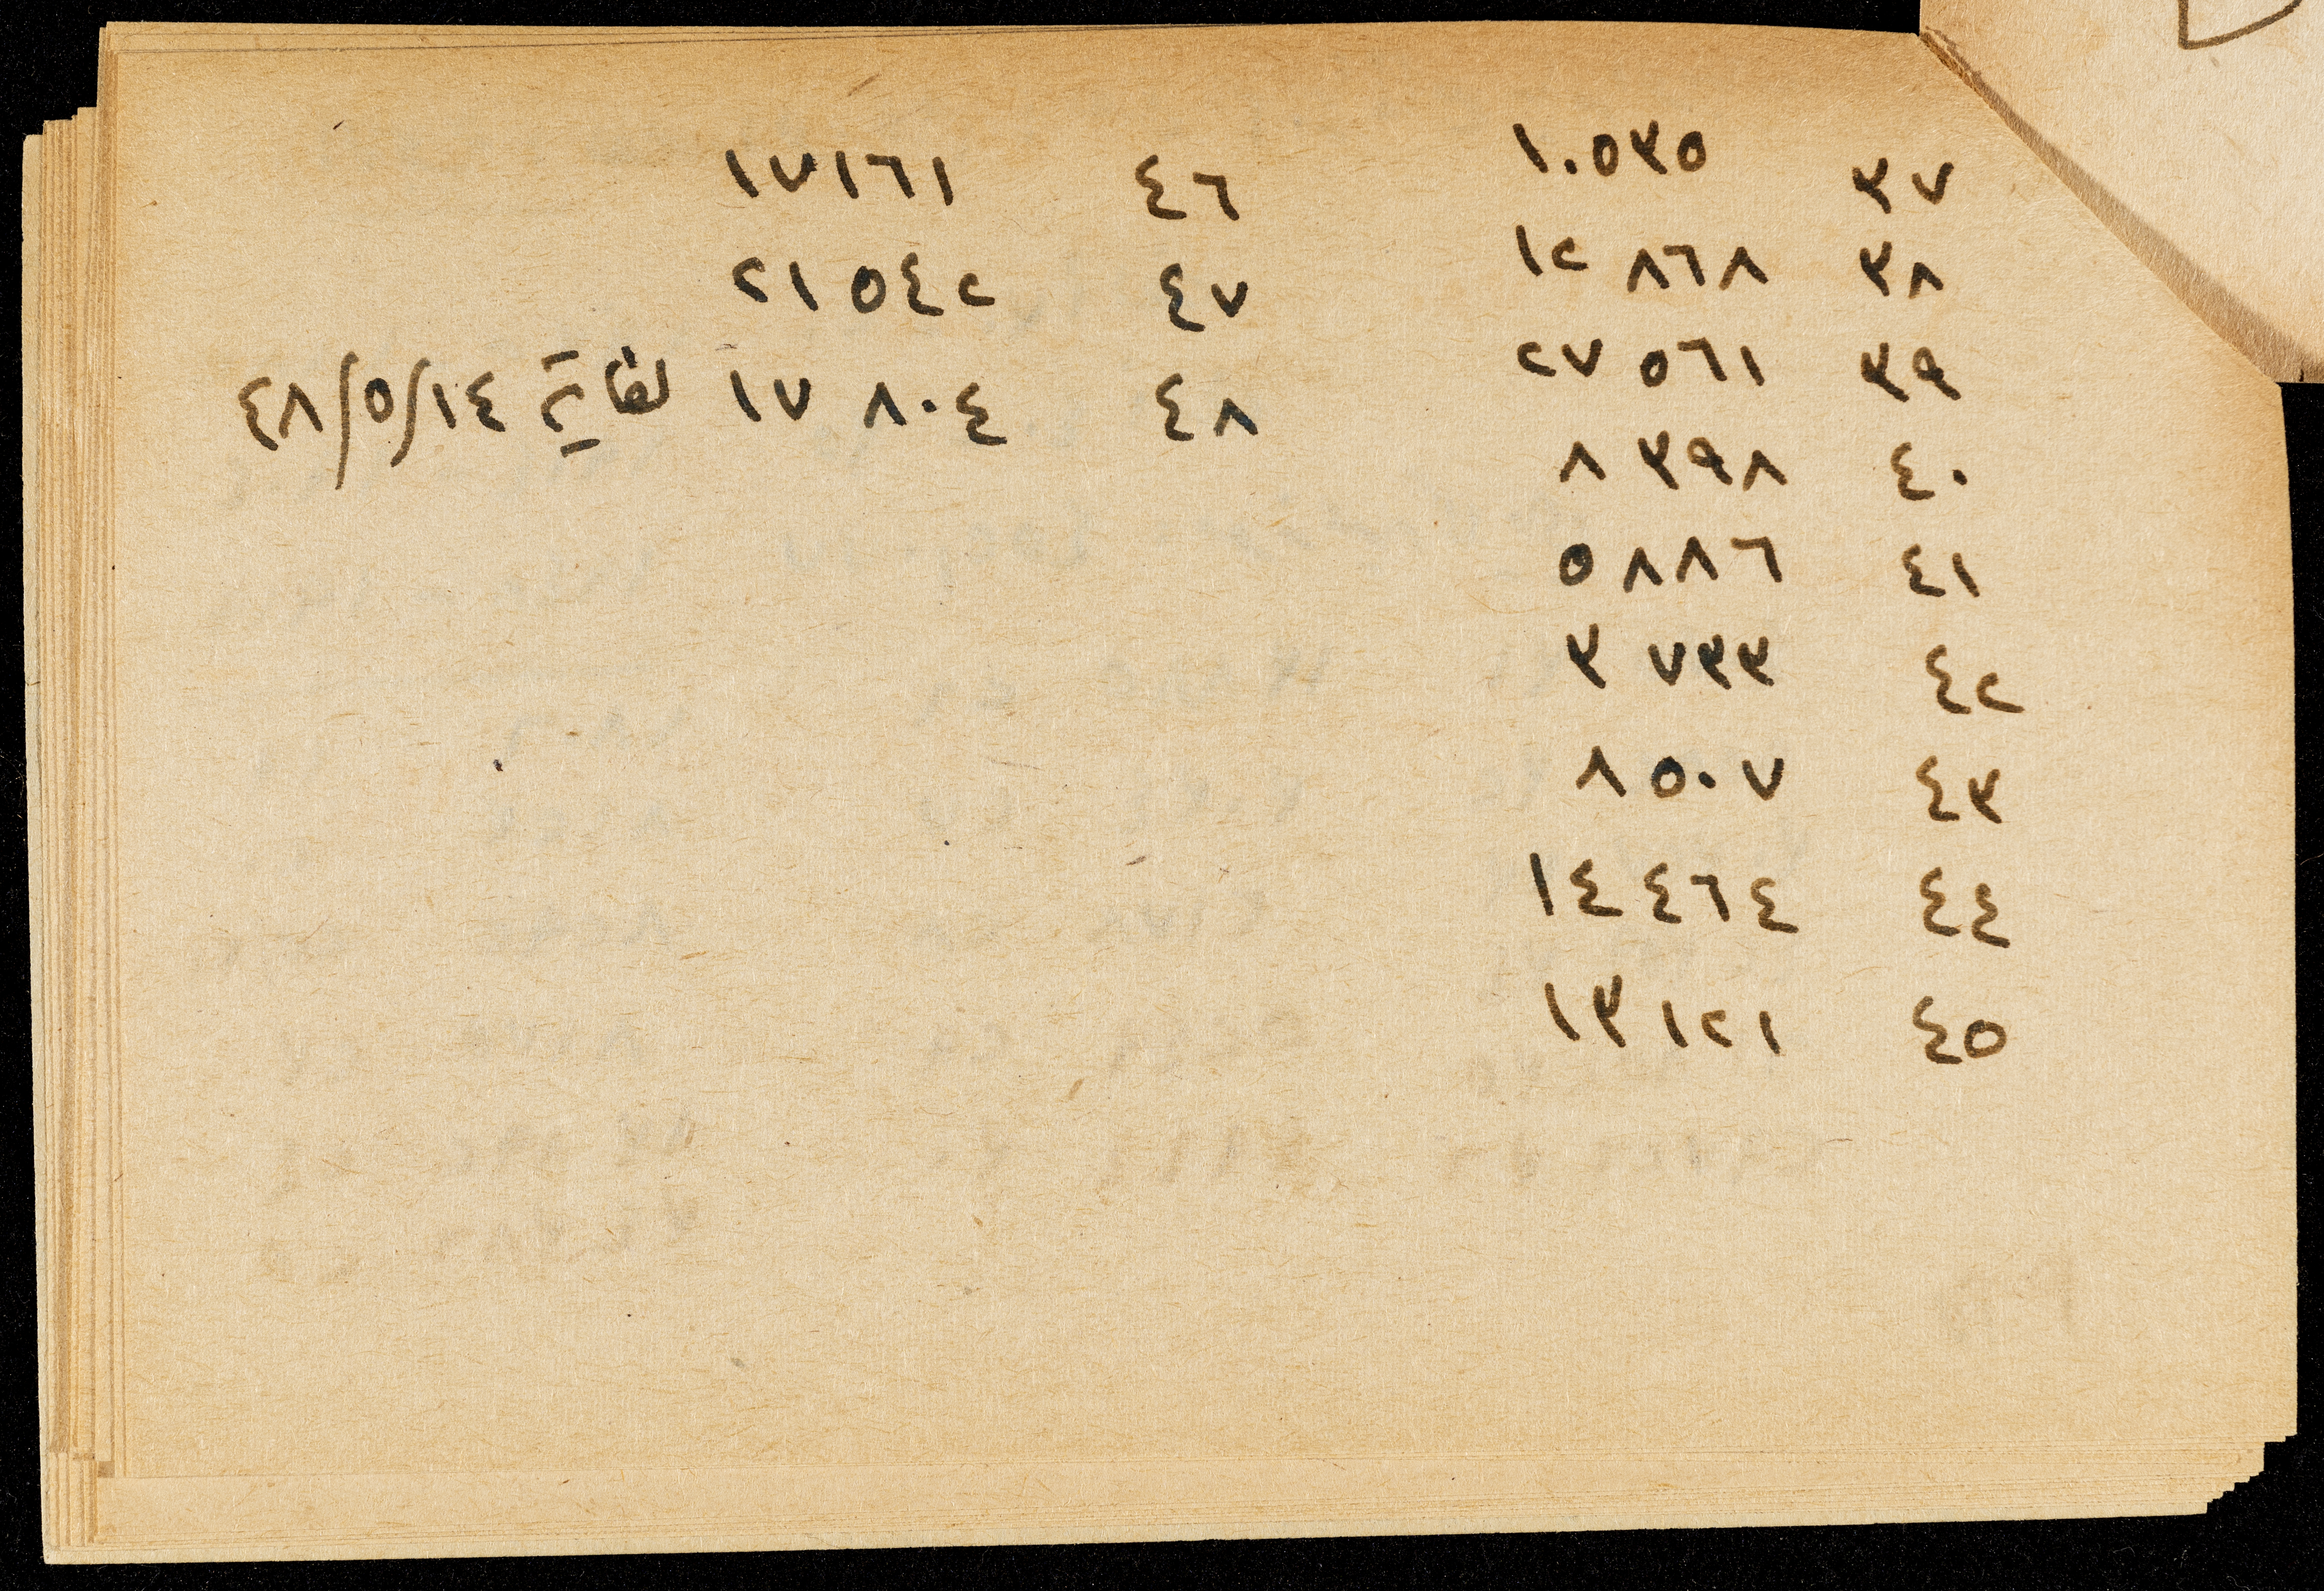 ٣٧ ١٠٥٣٥
٣٨ ١٢ ٨٦٨
٣٩ ٢٧ ٥٦١
٤٠ ٨ ٣٩٨
٤١ ٥ ٨٨٦
٤٢ ٣ ٧٣٣
٤٣ ٨ ٥٠٧
٤٤ ١٤ ٤٦٤
٤٥ ١٣ ١٢١
٤٦ ١٧١٦١
٤٧ ٢١ ٥٤٢
٤٨ ١٧ ٨٠٤ لغاية ٤٨/٥/١٤